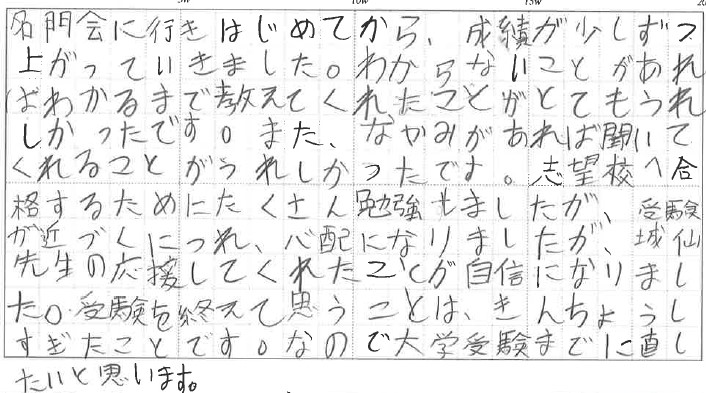 名門会に行きはじめてから、成績が少しずつ
上がっていきました。わからないことがあれ
ばわかるまで教えてくれたことがとてもうれ
しかったです。また、なやみがあれば聞いて
くれることがうれしかったです。志望校へ合
格するためにたくさん勉強もしましたが、受験
が近づくにつれ、心配になりましたが、城仙
先生の応援してくれたことが自信になりまし
た。受験を終えて思うことは、きんちょうし
すぎたことです。なので大学受験までに直し
たいと思います。